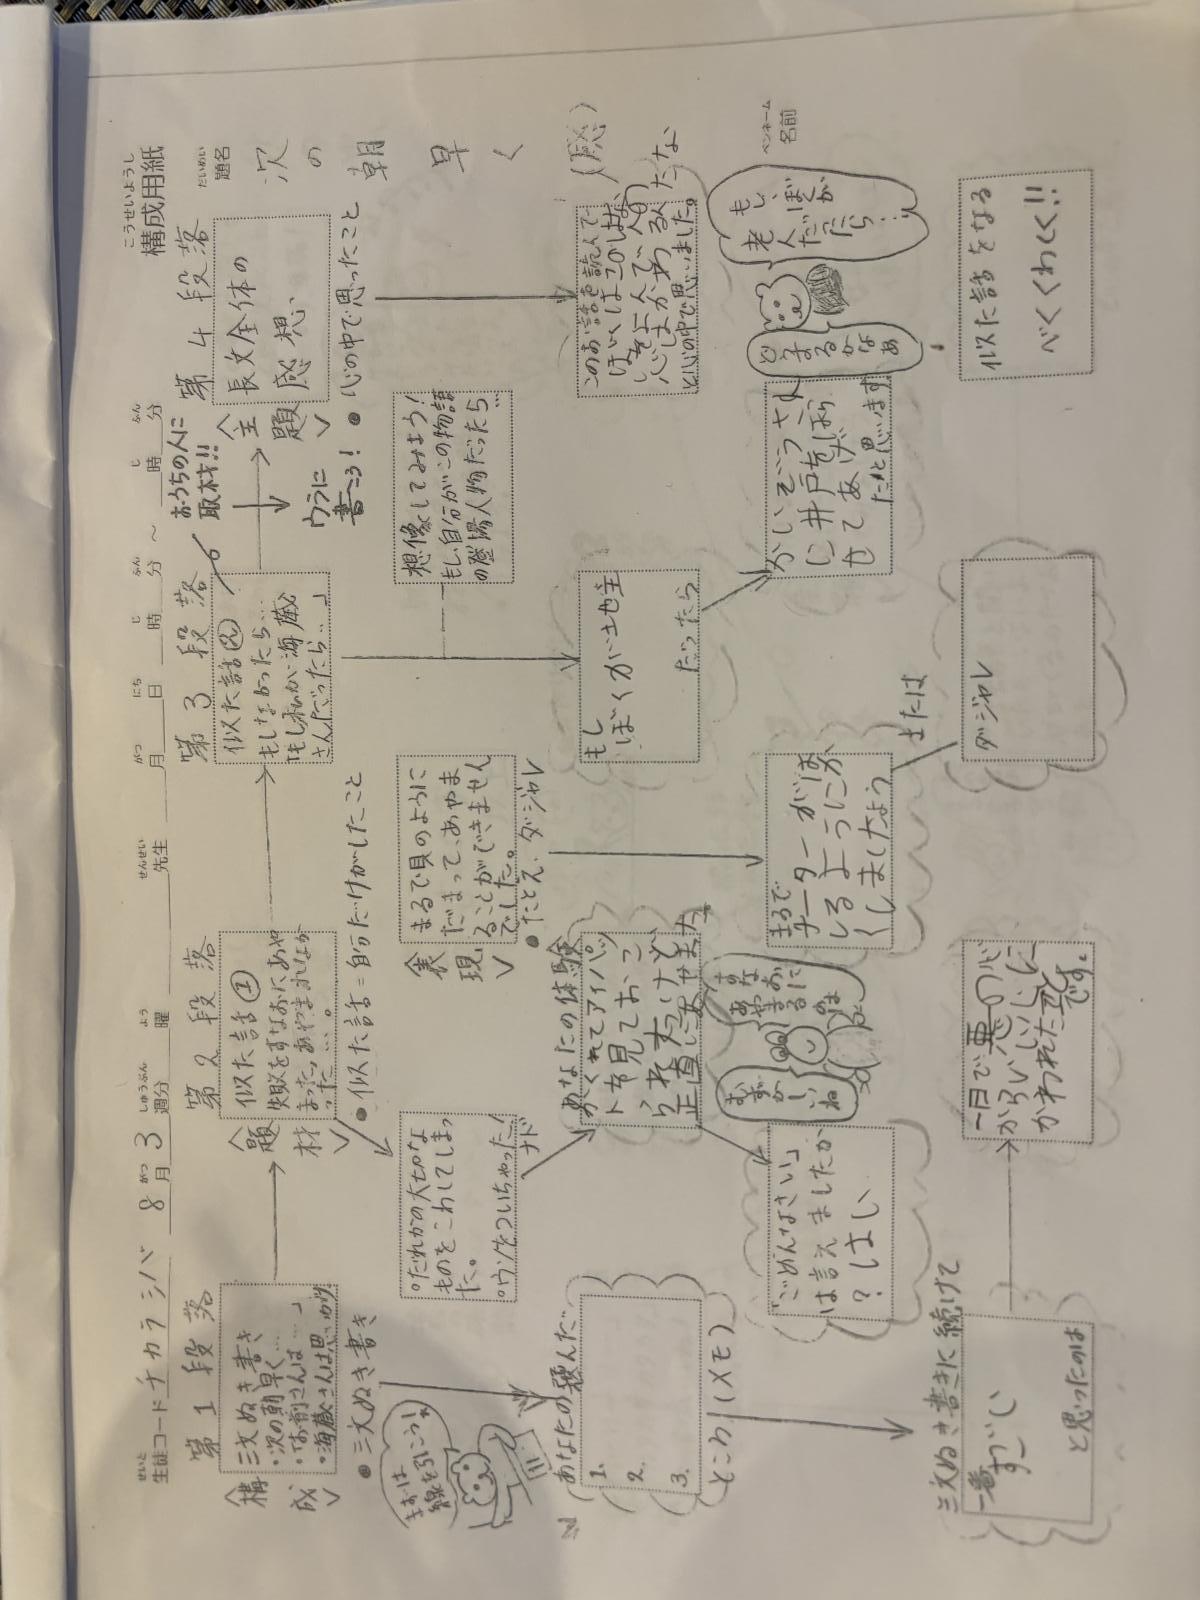 こうせいようし
構成用紙
だいめい
題名
次の朝早く(感)
ペンネーム
名前
せいと
生徒コード チカラシバ 8月3週分 曜 先生 月 日 時 分 ~ 時 分
がつ しゅうぶん よう せんせい がつ にち じ ふん じ ふん
第1段落
〈構成〉
三文ぬき書き
・次の朝早く…
・お前さんは…」
・海蔵さんは思いがけ
●三文ぬき書き
まずは
線を引こう!
あなたの選んだ
1.
2.
3.
ところ(メモ)
三文ぬき書きに続けて
一番
すごい
と思ったのは
一日で悪の心
からいい心に
かわれた事
です。
第2段落
〈題材〉
似た話①
失敗をすなおにあや
まった、あやまれなか
った…。
●似た話=自分だけがしたこと
○だれかの大切な
ものをこわしてしまっ
た。
○ウソをついちゃった!
ナド
あなたの体験
かくれてアイパッ
トを見ておこ
られたけど
正直にあやまた
「ごめんなさい」
は言えましたか
?はい
むずかしいね
すなおに
あやまる
のは
〈表現〉
まるで貝のように
だまって、あやま
ることができません
でした。
●たとえ、ダジャレ
まるで
チーターがは
しるように
くしましたよう
または
ダジャレ
第3段落
似た話②
もしなかったら…
「もし私が海蔵
さんだったら…」
おうちの人に
取材!!
ウラに
書こう!
想像してみよう!
もし、自分がこの物語
の登場人物だったら…
もし
ぼくが地主
だったら
かいぞうさん
に井戸をほら
せてあげ
たと思います
第4段落
〈主題〉
長文全体の
感想
●心の中で思ったこと
このお話を読んで
ぼくは
人の
心はかわるんだな
と心の中で思いました。
どう
するかなあ
もし、ぼくが
老人だっ
たら…
似た話をなる
べくくわしく!!